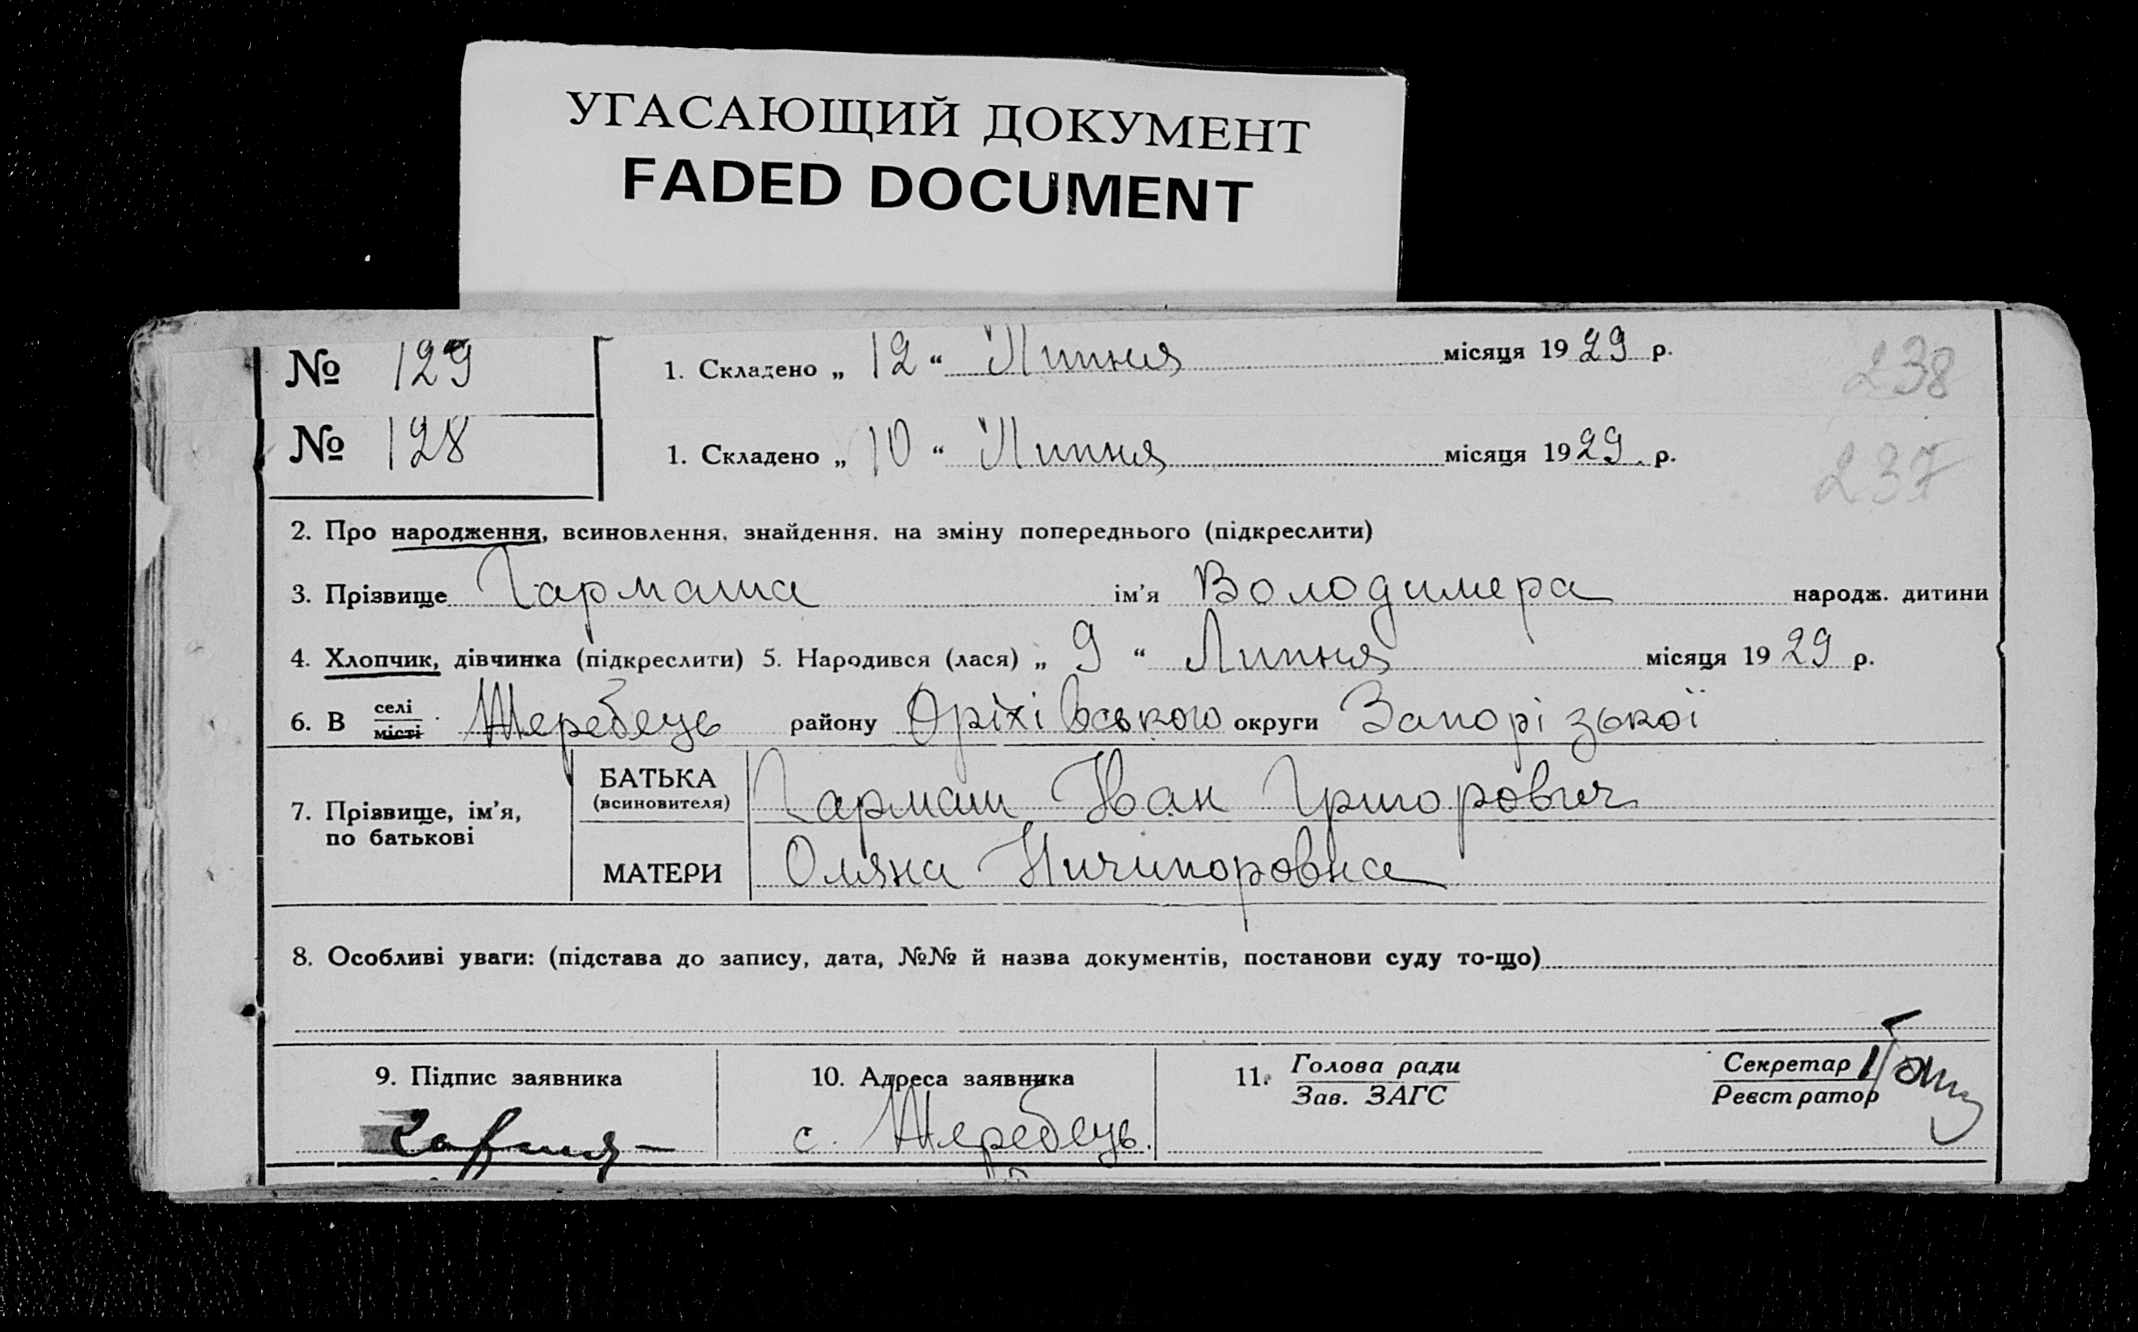 УГАСАЮЩИЙ ДОКУМЕНТ
FADED DOCUMENT
№ 129 1. Складено „ 12 “ Липня місяця 1929 р. 238
№ 128 1. Складено „ 10 “ Липня місяця 1929. р. 237
2. Про народження, всиновлення, знайдення, на зміну попереднього (підкреслити)
3. Прізвище Гармаша ім’я Володимера народж. дитини
4. Хлопчик, дівчинка (підкреслити) 5. Народився (лася) „ 9 “ Липня місяця 1929 р.
6. В селі місті Жеребець району Оріхівського округи Запорізької
7. Прізвище, ім’я, по батькові
БАТЬКА (всиновителя) Гармаш Іван Григорович
МАТЕРИ Оляна Ничипоровна
8. Особливі уваги: (підстава до запису, дата, №№ й назва документів, постанови суду то-що)
9. Підпис заявника 10. Адреса заявника 11. Голова ради Секретар
Зав. ЗАГС Реєстратор
с. Жеребець.